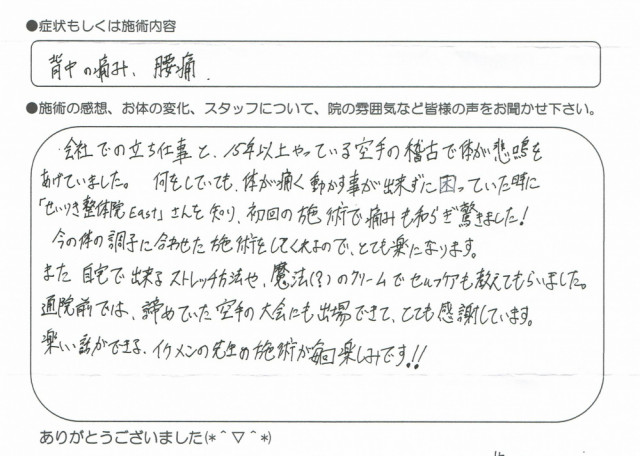 ●症状もしくは施術内容
背中の痛み、腰痛
●施術の感想、お体の変化、スタッフについて、院の雰囲気など皆様の声をお聞かせ下さい。
会社での立ち仕事と、15年以上やっている空手の稽古で体が悲鳴を
あげていました。何をしていても、体が痛く動かす事が出来ずに困っていた時に
「せいりき整体院East」さんを知り、初回の施術で痛みも和らぎ驚きました!
今の体の調子に合わせた施術をしてくれるので、とても楽になります。
また自宅で出来るストレッチ方法や、魔法(?)のクリームでセルフケアも教えてもらいました。
通院前では、諦めていた空手の大会にも出場できて、とても感謝しています。
楽しい話ができる、イケメンの先生の施術が毎回楽しみです!!
ありがとうございました(*＾▽＾*)